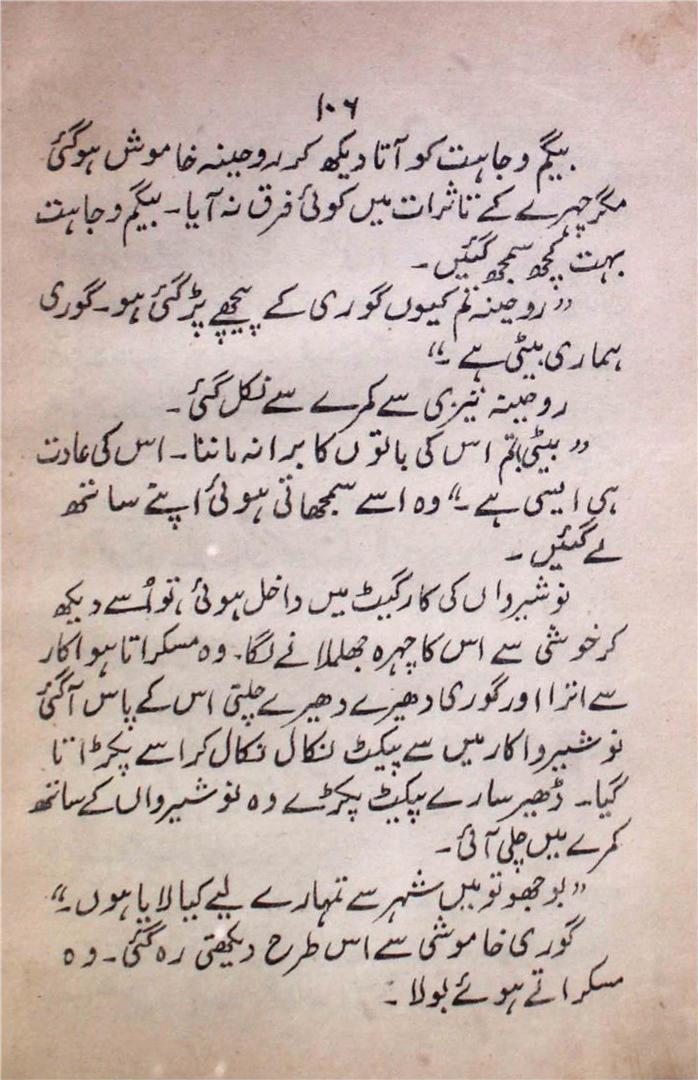 ۱۰۶
بیگم وجاہت کو آتا دیکھ کر روحینہ خاموش ہوگئی
مگر چہرے کے تاثرات میں کوئی فرق نہ آیا۔ بیگم وجاہت
بہت کچھ سمجھ گئیں۔
”روحینہ تم کیوں گوری کے پیچھے پڑ گئی ہو۔ گوری
ہماری بیٹی ہے۔“
روحینہ تیزی سے کمرے سے نکل گئی۔
”بیٹی تم اس کی باتوں کا برا نہ ماننا۔ اس کی عادت
ہی ایسی ہے۔“ وہ اسے سمجھاتی ہوئی اپنے ساتھ
لے گئیں۔
نوشیرواں کی کار گیٹ میں داخل ہوئی، تو اُسے دیکھ
کر خوشی سے اس کا چہرہ جھلملانے لگا۔ وہ مسکراتا ہوا کار
سے اترا اور گوری دھیرے دھیرے چلتی اس کے پاس آگئی
نوشیرواں کار میں سے پیکٹ نکال نکال کر اسے پکڑاتا
گیا۔ ڈھیر سارے پیکیٹ پکڑے وہ نوشیرواں کے ساتھ
کمرے میں چلی آئی۔
”بوجھو تو میں شہر سے تمہارے لیے کیا لایا ہوں۔“
گوری خاموشی سے اس طرح دیکھتی رہ گئی۔ وہ
مسکراتے ہوئے بولا۔